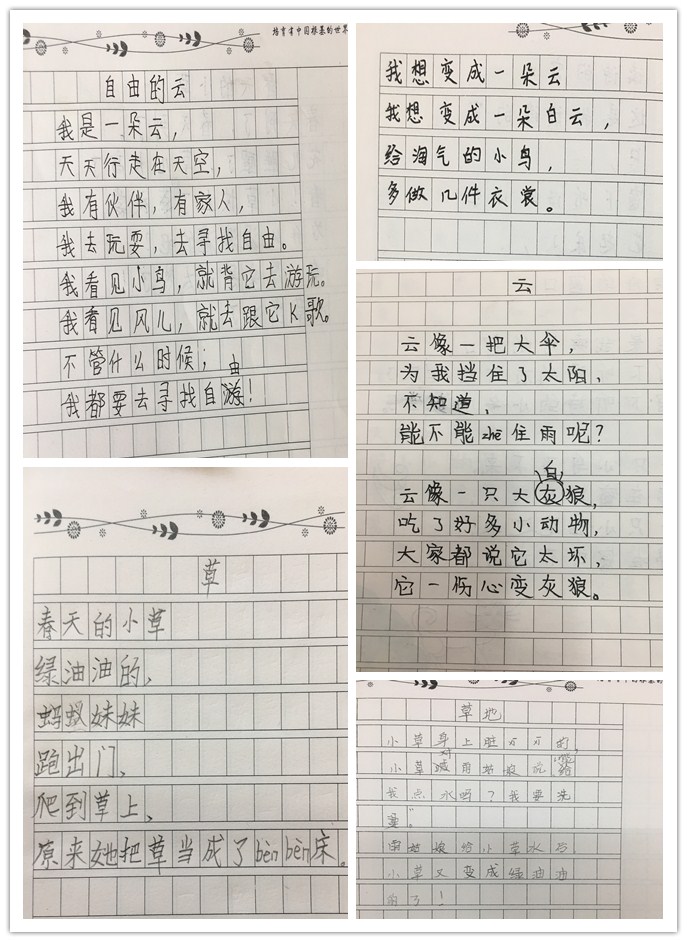 培育有中国根基的世界
自由的云
我是一朵云，
天天行走在天空，
我有伙伴，有家人，
我去玩耍，去寻找自由。
我看见小鸟，就背它去游玩。
我看见风儿，就去跟它K歌。
不管什么时候；
由
我都要去寻找自游！
草
春天的小草
绿油油的、
蚂蚁妹妹
跑出门、
爬到草上、
原来她把草当成了bèn bèn床。
我想变成一朵云
我想变成一朵白云，
给淘气的小鸟，
多做几件衣裳。
云
云像一把大伞，
为我挡住了太阳，
不知道，
能不能zhē住雨呢？
白
云像一只大灰狼，
吃了好多小动物，
大家都说它太坏，
它一伤心变灰狼。
草地
小草身上脏万万的，
对
小草 雨姑娘说 给
我点水吗？我要洗
澡。”
雨姑娘给小草水后，
小草又变成绿油油
的了！